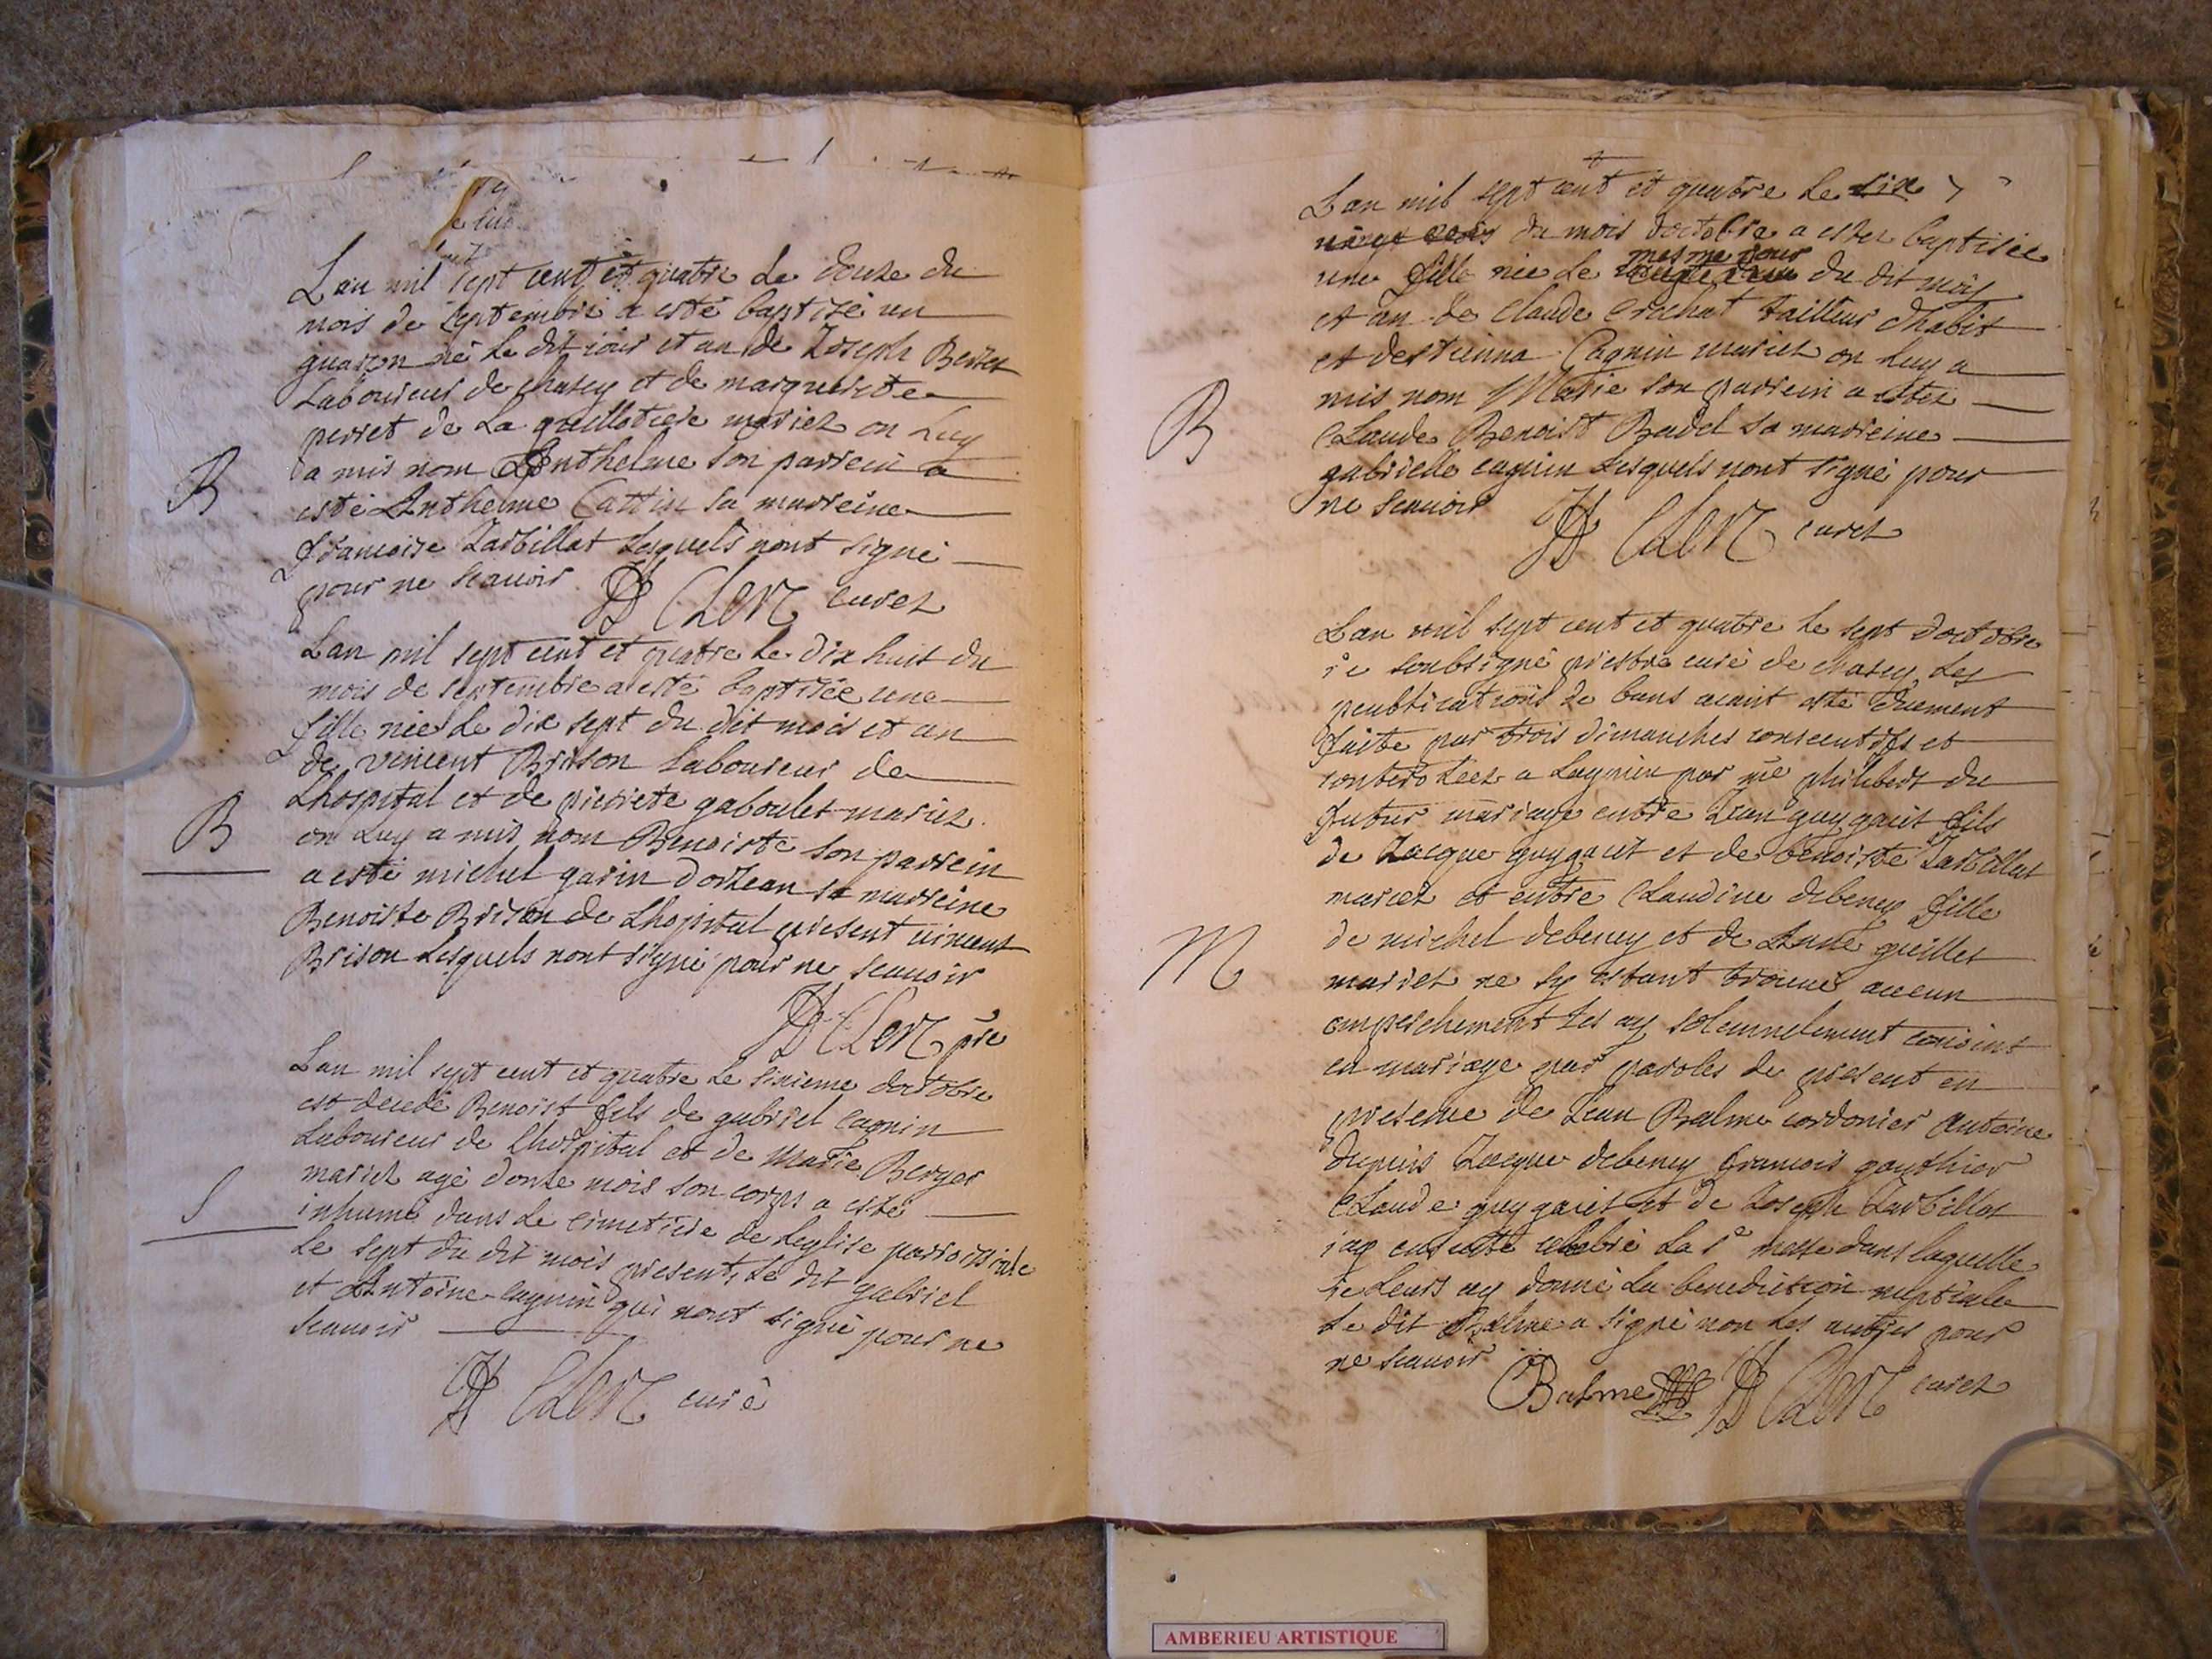 Lan mil sept cent et quatre le douze du
mois de septembre a esté baptizé un
guarson né le dit iour et an de Ioseph
Laboureur de chasey et de marguerite
perret de La guillotiere mariez on Luy
a mis nom Anthelme son parrein a
esté Anthelme Cattin sa marreine
francoise Tarbillat Lesquels nont signé
pour ne scauoir Clerc curez
B
Lan mil sept cent et quatre le dix huit du
mois de septembre a esté baptizée une
fille née le dix sept du dit mois et an
de vincent Brison Laboureur de
Lhospital et de pierrete gaboulet mariez
on Luy a mis nom Benoiste son parrein
a esté michel garin sa marreine
Benoiste Brison de Lhopital present vincent
Brison Lesquels nont signé pour ne scauoir
B
Clerc pre
Lan mil sept cent et quatre le sixieme doctobre
est decedé Benoist fils de gabriel cagnin
Laboureur de Lhospital et de Marie Berger
mariez agé donze mois son corps a esté
inhumé dans le cimetiere de leglise parroissiale
le sept du dit mois present, le dit gabriel
et Antoine cagnin qui nont signé pour ne
scauoir
S
Clerc curé
Lan mil sept cent et quatre le six
du mois doctobre a ester baptisée
mesme jour
une fille née le du dit mois
et an de Claude crochat tailleur dhabit
et destienna Cagnin mariez on luy a
mis nom Marie son parrein a ester
Claude Benoist Badel sa marreine
gabrielle cagnin Lesquels nont signé pour
ne scauoir
B
Clerc curez
Lan mil sept cent et quatre le sept doctobre
ie soubsigné prestre curé de chasey les
peublications de bans aiant esté duement
faite par trois dimanches consecutifs et
controleez a Lagnieu par me philibert du
futur mariage entre Iean guygait fils
de Iacque guygait et de benoiste Tarbillat
mariez et entre Claudine debeney fille
de michel debeney et de Anne guillet
mariez ne sy estant trouué aucun
empeschement les ay solennelement conioint
en mariage par paroles de present en
presence de Iean Balme cordonier Antoine
dupuis Iacque debeney francois gouthier
Claude guygait et de Ioseph Tarbillat
iay ensuitte celebré la ste messe dans laquelle
ie leurs ay donné la benediction nuptiale
le dit Balme a signé non les autres pour
ne scauoir
M
Balme Clerc curez
AMBERIEU ARTISTIQUE